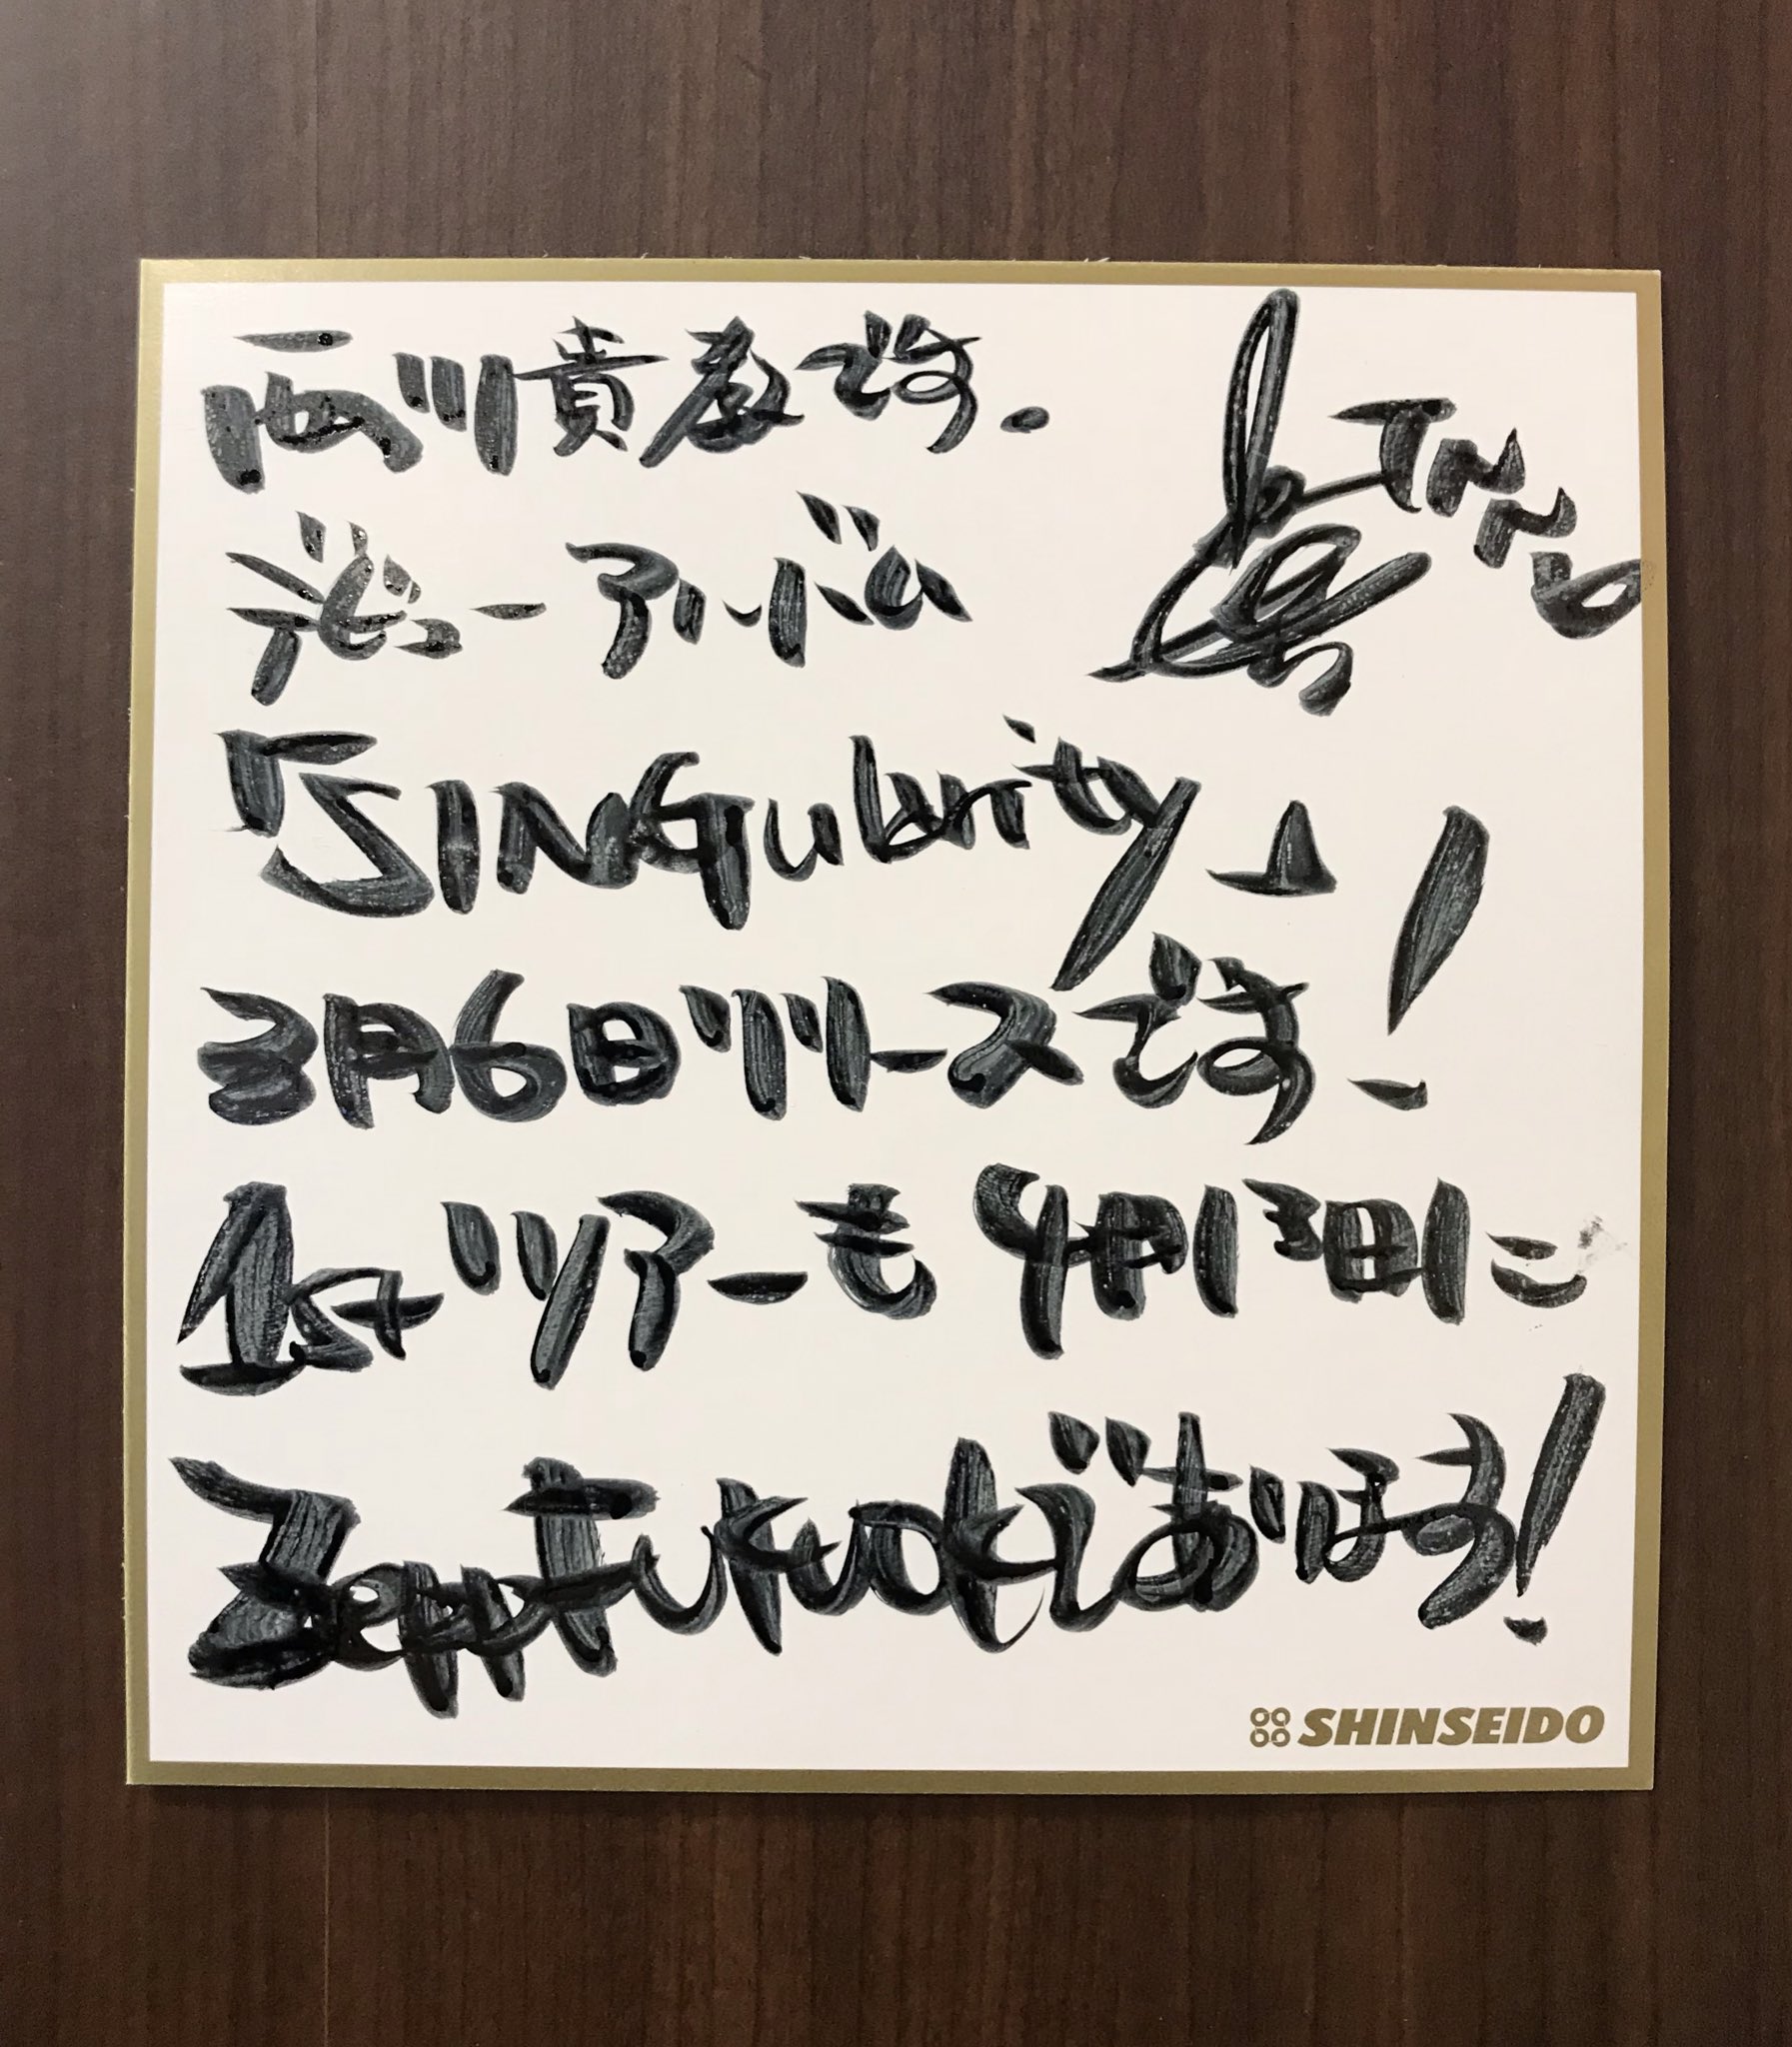 西川貴教です.
デビューアルバム
「SINGularity」!
3月6日リリースです-
1stツアーも4月13日に
Zepp Fukuokaであります!
SHINSEIDO